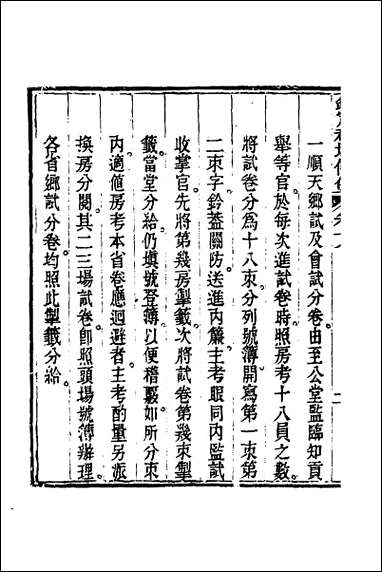 一順天鄉試及會試分卷由至公堂監臨知貢
舉等官於每次進試卷時照房考十八員之數。
將試卷分爲十八束分列號簿開寫第一束第
二束字鈐蓋關防送進內簾主考眼同內監試
收掌官先將第幾房掣籤次將試卷第幾束掣
籤當堂分給仍塡號登簿以便稽覈如所分束
內適值房考本省卷應迴避者主考酌量另派
換房分閱其二三場試卷卽照頭場號簿辦理。
各省鄉試分卷均照此掣籤分給。